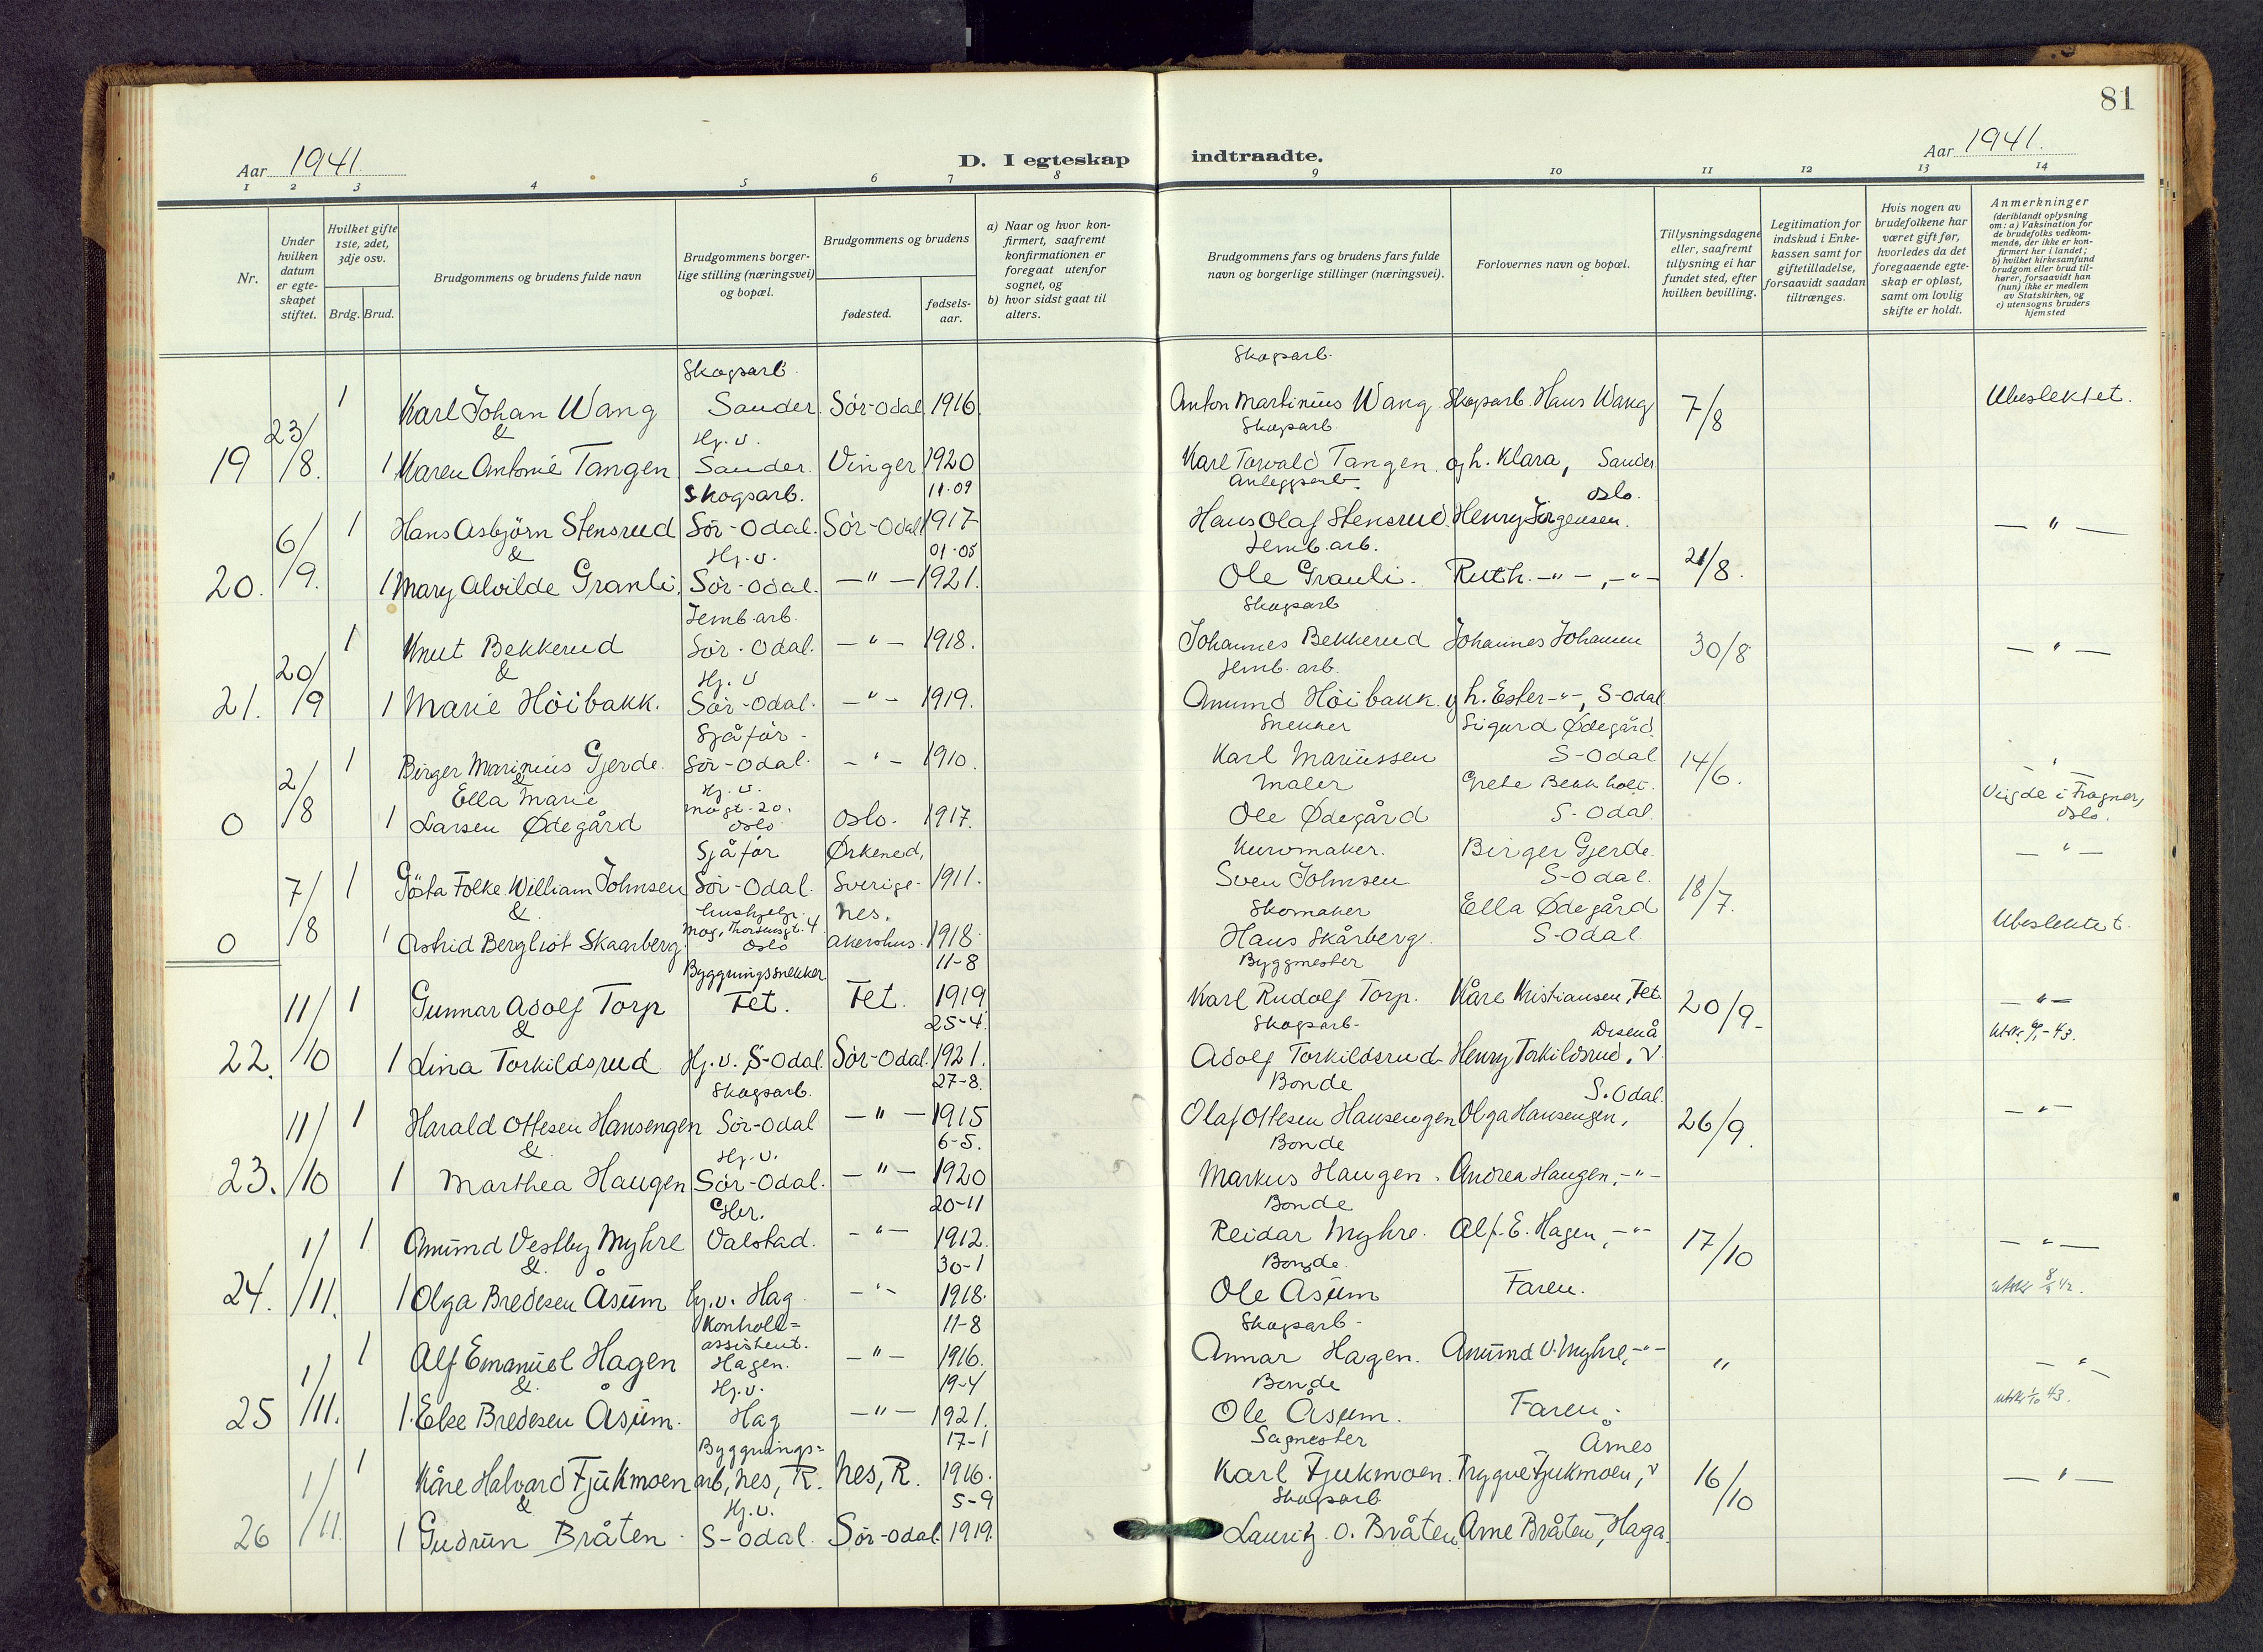 81
Aar 1941. D. I egteskap indtraadte. Aar 1941.
1 2 3 4 5 6 7 8 9 10 11 12 13 14
Nr.
Under hvilken datum er egteskapet stiftet.
Hvilket gifte 1ste, 2det, 3dje osv.
Brdg. Brud.
Brudgommens og brudens fulde navn
Brudgommens borgerlige stilling (næringsvei) og bopæl.
Brudgommens og brudens
fødested.
fødselsaar.
a) Naar og hvor konfirmert, saafremt konfirmationen er foregaat utenfor sognet, og
b) hvor sidst gaat til alters.
Brudgommens fars og brudens fars fulde navn og borgerlige stillinger (næringsvei).
Forlovernes navn og bopæl.
Tillysningsdagene eller, saafremt tillysning ei har fundet sted, efter hvilken bevilling.
Legitimation for indskud i Enkekassen samt for giftetilladelse, forsaavidt saadan tiltrænges.
Hvis nogen av brudefolkene har været gift før, hvorledes da det foregaaende egteskap er opløst, samt om lovlig skifte er holdt.
Anmerkninger (deriblandt oplysning om: a) Vaksination for de brudefolks vedkommende, der ikke er konfirmert her i landet; b) hvilket kirkesamfund brudgom eller brud tilhører, forsaavidt han (hun) ikke er medlem av Statskirken, og c) utensogns bruders hjemsted
Skogsarb. Skogsarb.
1 Karl Johan Wang Sander. Sör-Odal 1916. Anton Martinius Wang Skogsarb. Hans Wang 7/8 Ubeslektet.
23/8. & Hj. v. Skogsarb.
19 1 Karen Antonie Tangen Sander. Vinger 1920 Karl Torvald Tangen og h. Klara, Sander
Skogsarb. 11-09 Anleggsarb. Oslo.
6/9. 1 Hans Asbjörn Stensrud Sör-Odal. Sör-Odal 1917 Hans Olaf Stensrud. Henry Jörgensen. — " —
& Hj. v. 01-05 Jernb. arb.
20. 1 Mary Alvilde Granli. Sör-Odal. — " — 1921. Ole Granli. Ruth. — " —, — " — 21/8.
Jernb. arb. Skogsarb
1 Knut Bekkerud Sör-Odal. — " — 1918. Johannes Bekkerud Johannes Johansen 30/8 — " —
20/9 & Hj. v Jernb. arb.
21. 1 Marie Höibakk. Sör-Odal. — " — 1919. Amund Höibakk. og h. Ester — " —, S-Odal
Sjåför - Snekker Sigurd Ødegård.
2/8 1 Birger Marinius Gjerde. Sör-Odal. — " — 1910. Karl Mariussen S-Odal 14/6. — " —
& Ella Marie Hj. v. Maler Grete Bekkholt. Vigde i Frogner, Oslo.
0 1 Larsen Ødegård Mogt. 20. Oslo Oslo. 1917. Ole Ødegård S-Odal.
Sjåför Ørkened, Kurvmaker. Birger Gjerde. — " —
7/8 1 Gösta Folke William Johnsen Sör-Odal. Sverige. 1911. Sven Johnsen S-Odal. 18/7.
& hushjelp. Nes. Skomaker Ella Ødegård Ubeslektet.
0 1 Astrid Bergliot Skaarberg. Mog. Thorsensgt. 4 Oslo Akershus. 1918. Hans Skårberg. S-Odal.
Byggningssnekker 11-8 Byggmester
11/10 1 Gunnar Adolf Torp Fet. Fet. 1919 Karl Rudolf Torp. Kåre Kristiansen, Fet. 20/9- — " —
& 25-4. Skogsarb- Disenå
22. 1 Lina Torkildsrud Hj. v. S-Odal. Sör-Odal. 1921. Adolf Torkildsrud- Henry Torkildsrud, v
Skogsarb. 27-8. Bonde S. Odal.
11/10 1 Harald Ottesen Hansengen Sör-Odal — " — 1915 Olaf Ottesen Hansengen Olga Hansengen, 26/9. — " —
& Hj. v. 6-5. Bonde
23. 1 Marthea Haugen Sör-Odal. — " — 1920 Markus Haugen. Andrea Haugen, — " —
Gbr. 20-11 Bonde
1/11. 1 Amund Vestby Myhre Valstad. — " — 1912. Reidar Myhre. Alf E. Hagen, — " — 17/10 — " —
& 30-1 Bonde.
24. 1 Olga Bredesen Åsum hj. v. Hag — " — 1918. Ole Åsum Faren.
Kontroll= 11-8 Skogsarb-
1/11. 1 Alf Emanuel Hagen assistent. Hagen. — " — 1916. Annar Hagen. Amund V. Myhre, — " — " — " —
& Hj. v. 19-4 Bonde
25 1 Else Bredesen Åsum. Hag — " — 1921. Ole Åsum. Faren.
Byggnings= 17-1 Sagmester Årnes
1/11. 1 Kåre Halvard Fjukmoen arb, Nes, R. Nes, R. 1916. Karl Fjukmoen. Trygve Fjukmoen, v 16/10 — " —
& Hj. v. 5-9 Skogsarb
26 1 Gudrun Bråten. S-Odal. Sör-Odal. 1919. Lauritz O. Bråten. Arne Bråten, Haga.